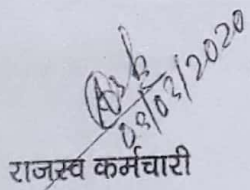 03/03/2020
राजस्व कर्मचारी